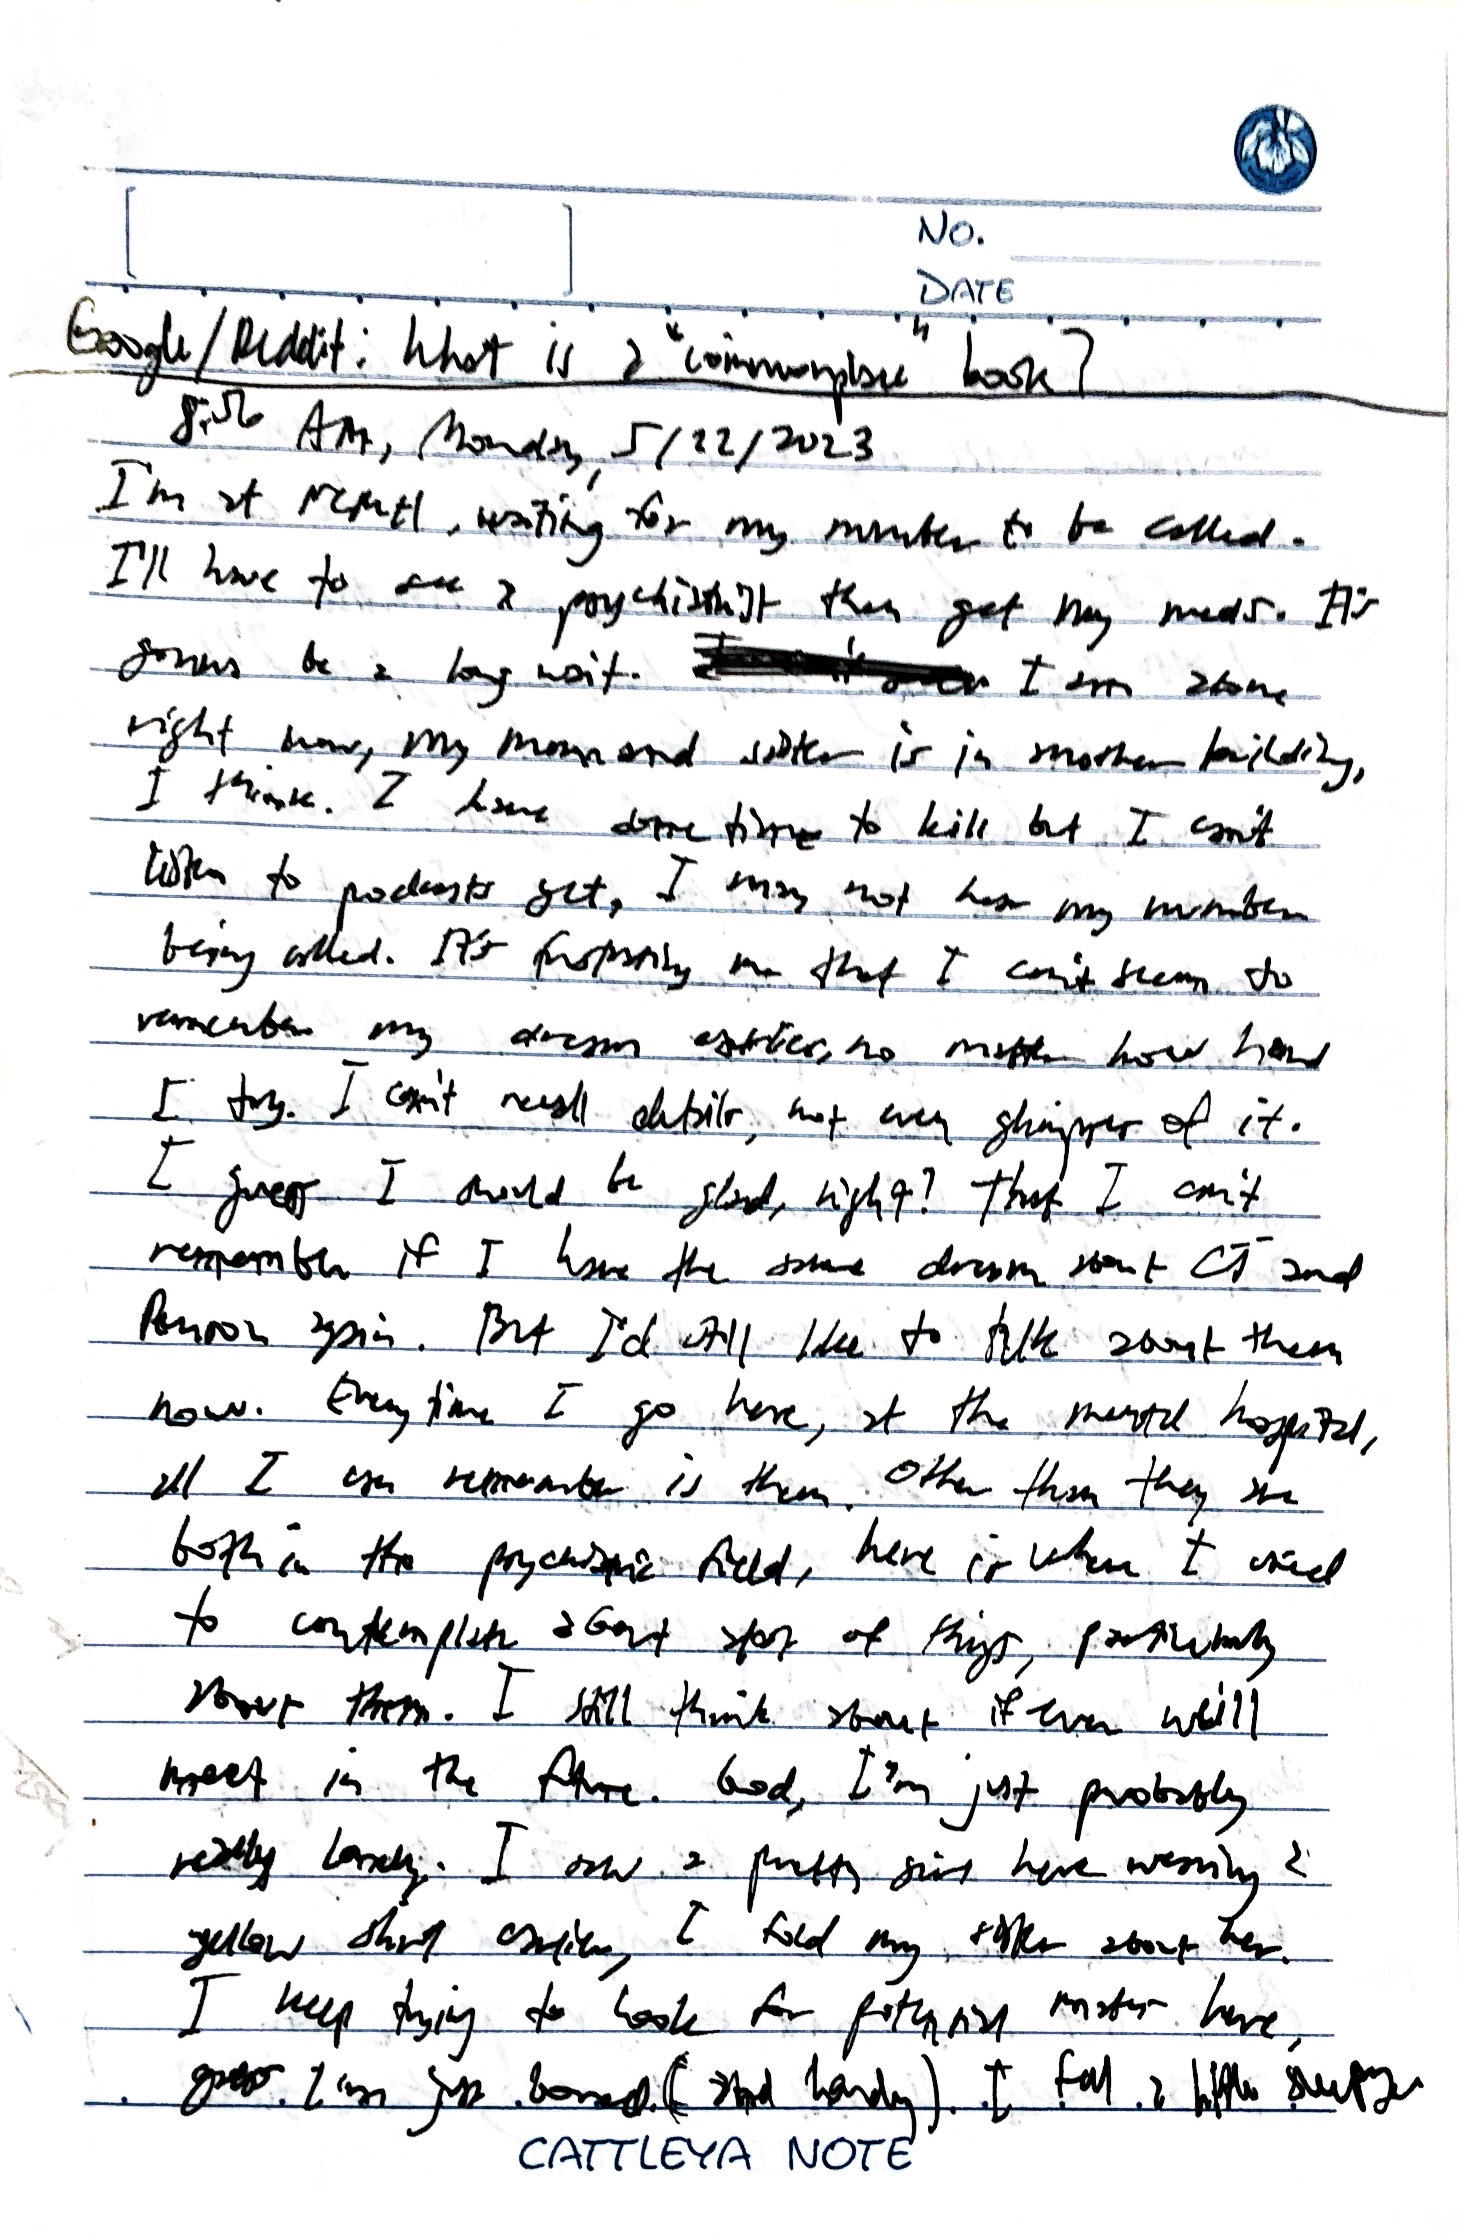 No.
DATE
Google/Reddit: What is a "commonplace" book?
8:56 AM, Monday, 5/22/2023
I'm at NCMH, waiting for my number to be called.
I'll have to see a psychiatrist then get my meds. It's
gonna be a long wait. I am alone
right now, my mom and sister is in another building,
I think. I have some time to kill but I can't
listen to podcasts yet, I may not hear my number
being called. It's frustrating me that I can't seem to
remember my dream earlier, no matter how hard
I try. I can't recall details, not even glimpses of it.
I guess I should be glad, right? That I can't
remember if I have the same dream about CJ and
again. But I'd still like to talk about them
now. Everytime I go here, at the mental hospital,
all I can remember is them. Other than they are
both in the psychiatric field, here is where I used
to contemplate about of things, particularly
about them. I still think about if ever we'll
meet in the future. God, I'm just probably
really lonely. I saw a pretty girl here wearing a
yellow shirt earlier, I told my sister about her.
I keep trying to look for potential mates here,
guess I'm just bored. (and ). I feel a little sleepy
CATTLEYA NOTE